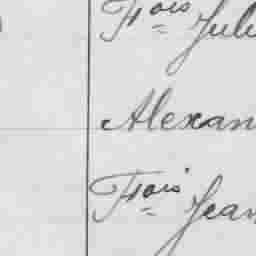 Fois Jule
Alexan
Fois Jean